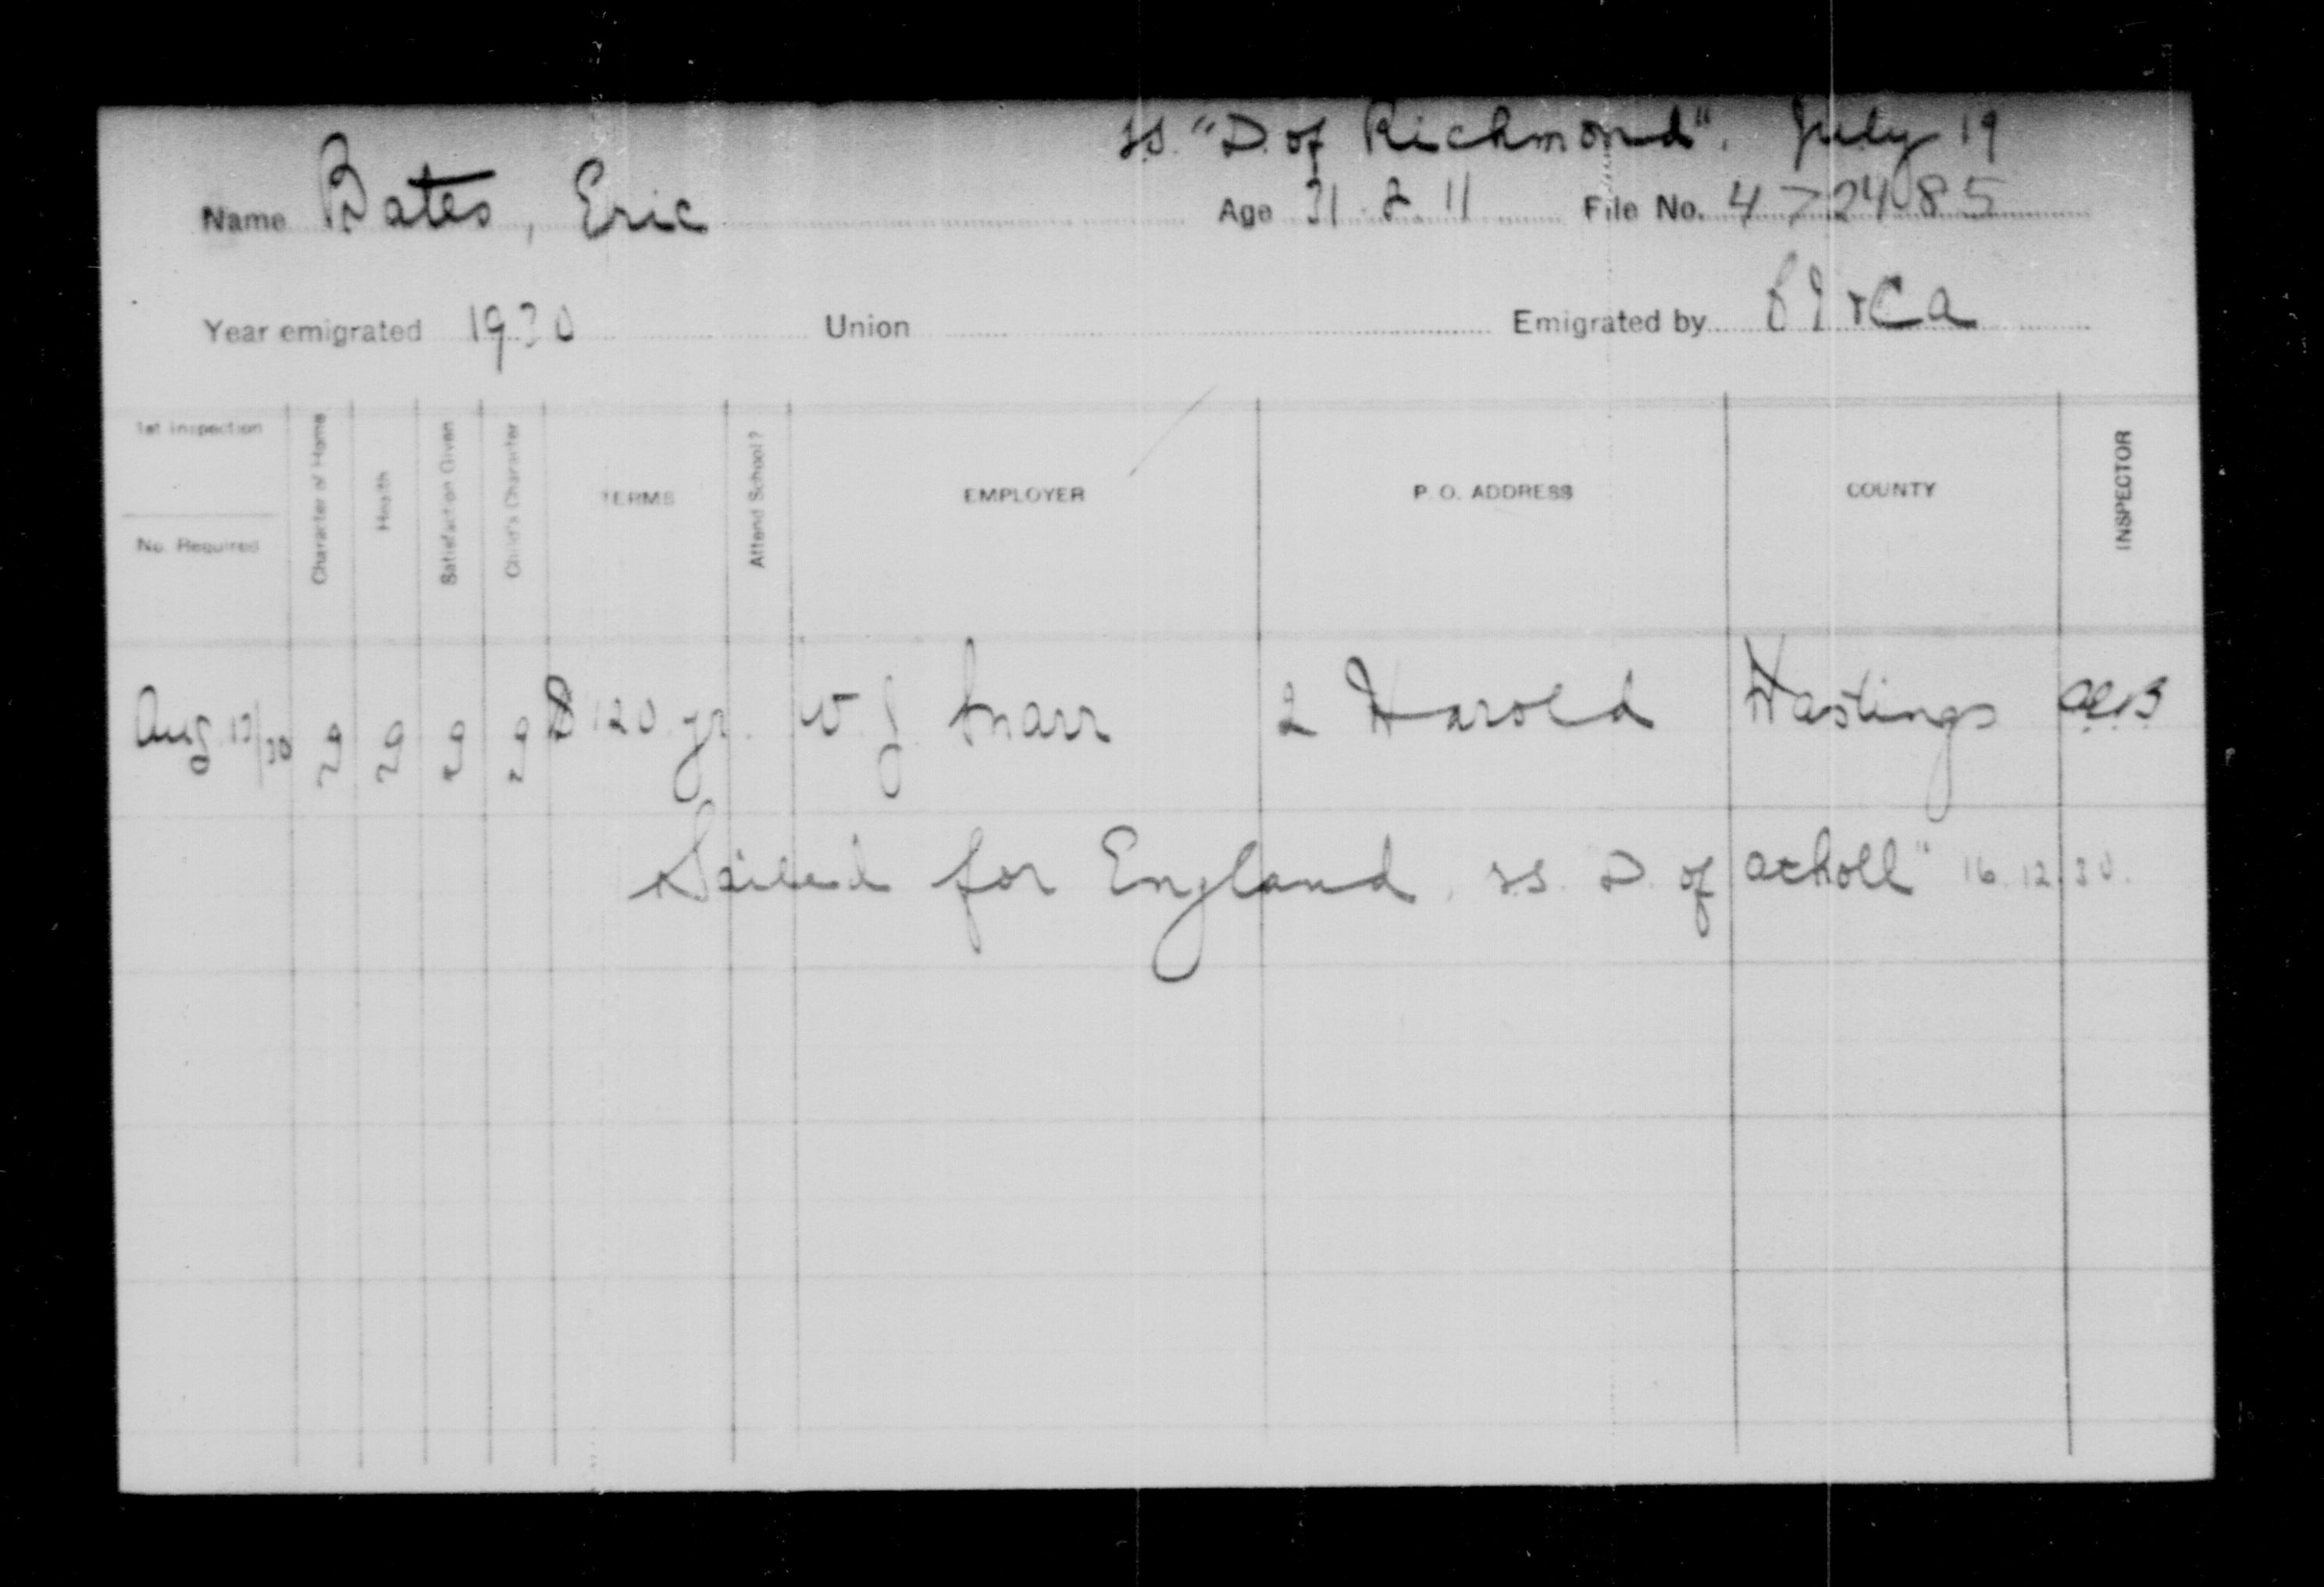 ss. "D. of Richmond". July 19
Name Bates, Eric Age 31. 2. 11 File No. 4724085
Year emigrated 1930 Union Emigrated by
1st Inspection
No. Required
Character of Home
Health
Satisfaction Given
Child's Character
TERMS
Attend School?
EMPLOYER
P. O. ADDRESS
COUNTY
INSPECTOR
Aug 13/30 g g g g $120 yr. W J Marr 2 Harold Hastings
Sailed for England, ss. D. of atholl" 16.12.30.